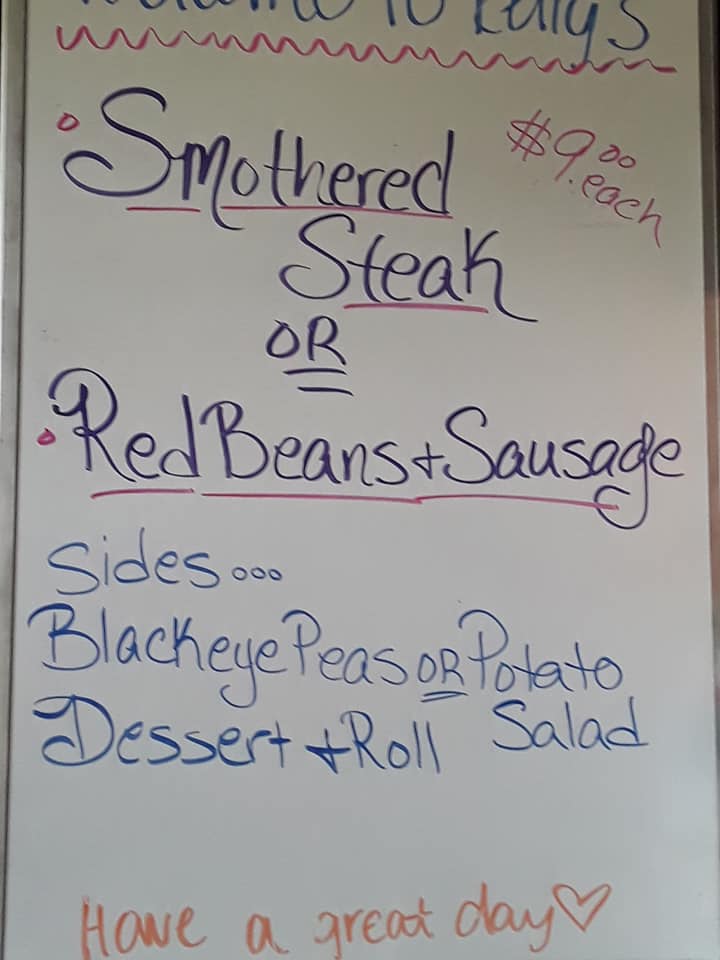 to
Smothered
$9.00 each
Steak
OR
Red Beans + Sausage
Sides...
Blackeye Peas OR Potato
Salad
Dessert + Roll
Have a great day♡